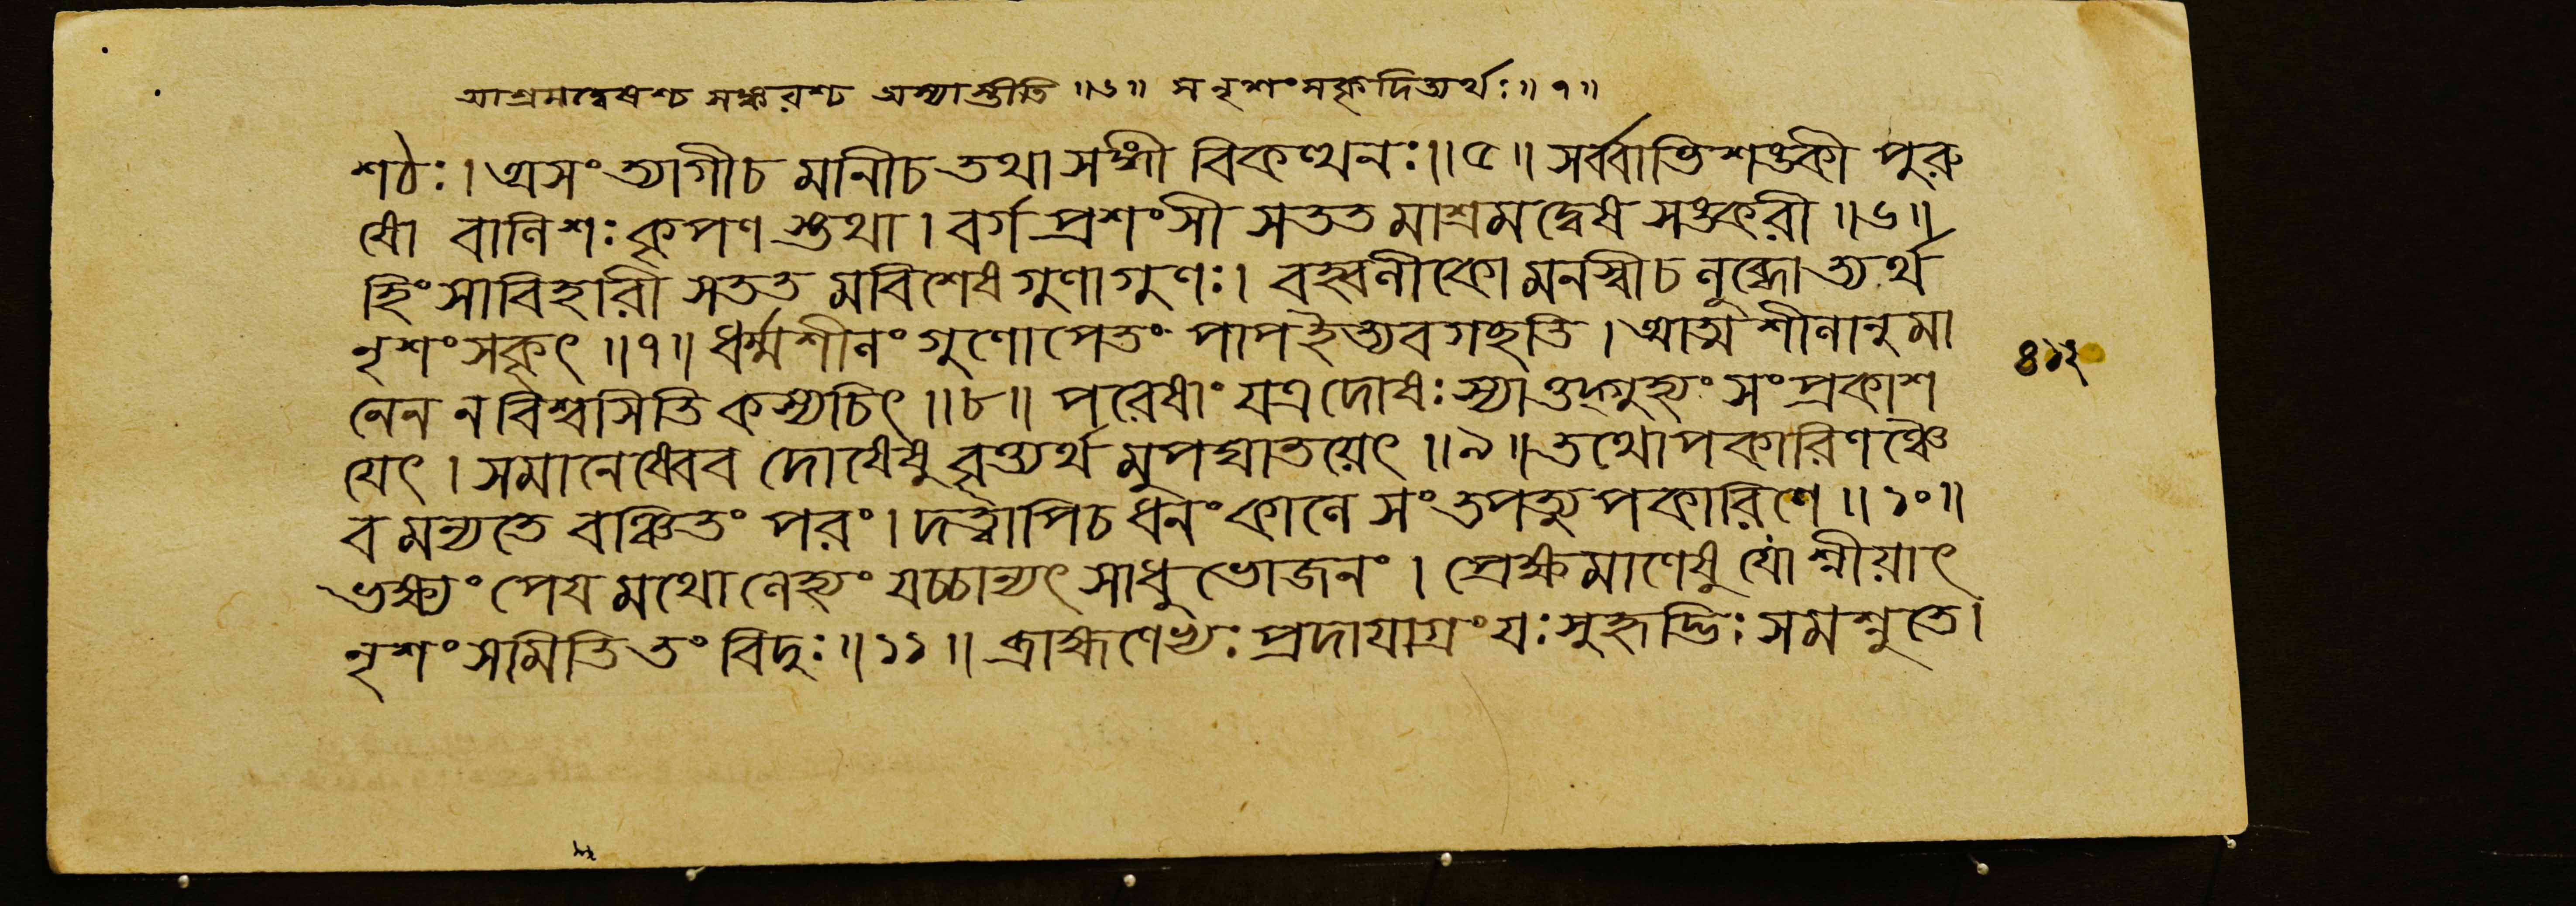 আশ্রমদ্বেষশ্চ সঙ্করশ্চ অস্যাস্তীতি ॥৬॥ স নৃশংসকৃদিত্যর্থঃ ॥ ৭ ॥
শঠঃ । অসংত্যাগীচ মানীচ তথা সঙ্গী বিকত্থনঃ ॥ ৫ ॥ সর্ব্বাতিশঙ্কী পুরু
ষো বালিশঃ কৃপণ স্তথা । বর্গপ্রশংসী সতত মাশ্রমদ্বেষ সঙ্করী ॥ ৬ ॥
হিংসাবিহারী সতত মবিশেষগুণাগুণঃ । বহ্বলীকো মনস্বীচ লুব্ধোত্যর্থ
নৃশংসকৃৎ ॥ ৭ ॥ ধর্ম্মশীলং গুণোপেতং পাপইত্যবগছতি । আত্মশীলানুমা
নেন ন বিশ্বসিতি কস্যচিৎ ॥ ৮ ॥ পরেষাং যত্রদোষঃ স্যাত্তদ্গুহ্যং সংপ্রকাশ
যেৎ । সমানেষ্বেব দোষেষু বৃত্যর্থ মুপঘাতয়েৎ ॥ ৯ ॥ তথোপকারিণঞ্চৈ
ব মন্যতে বঞ্চিতং পরং । দত্ত্বাপিচ ধনংকালে সংতপত্যুপকারিণে ॥ ১০ ॥
ভক্ষ্যং পেয মথোলেহ্যং যচ্চান্যৎ সাধুভোজনং । প্রেক্ষমাণেষু যোশ্নীয়াৎ
নৃশংসমিতি তং বিদুঃ ॥ ১১ ॥ ব্রাহ্মণেভ্যঃ প্রদাযাগ্রং যঃ সুহৃদ্ভিঃ সমশ্নুতে ।
৪১২